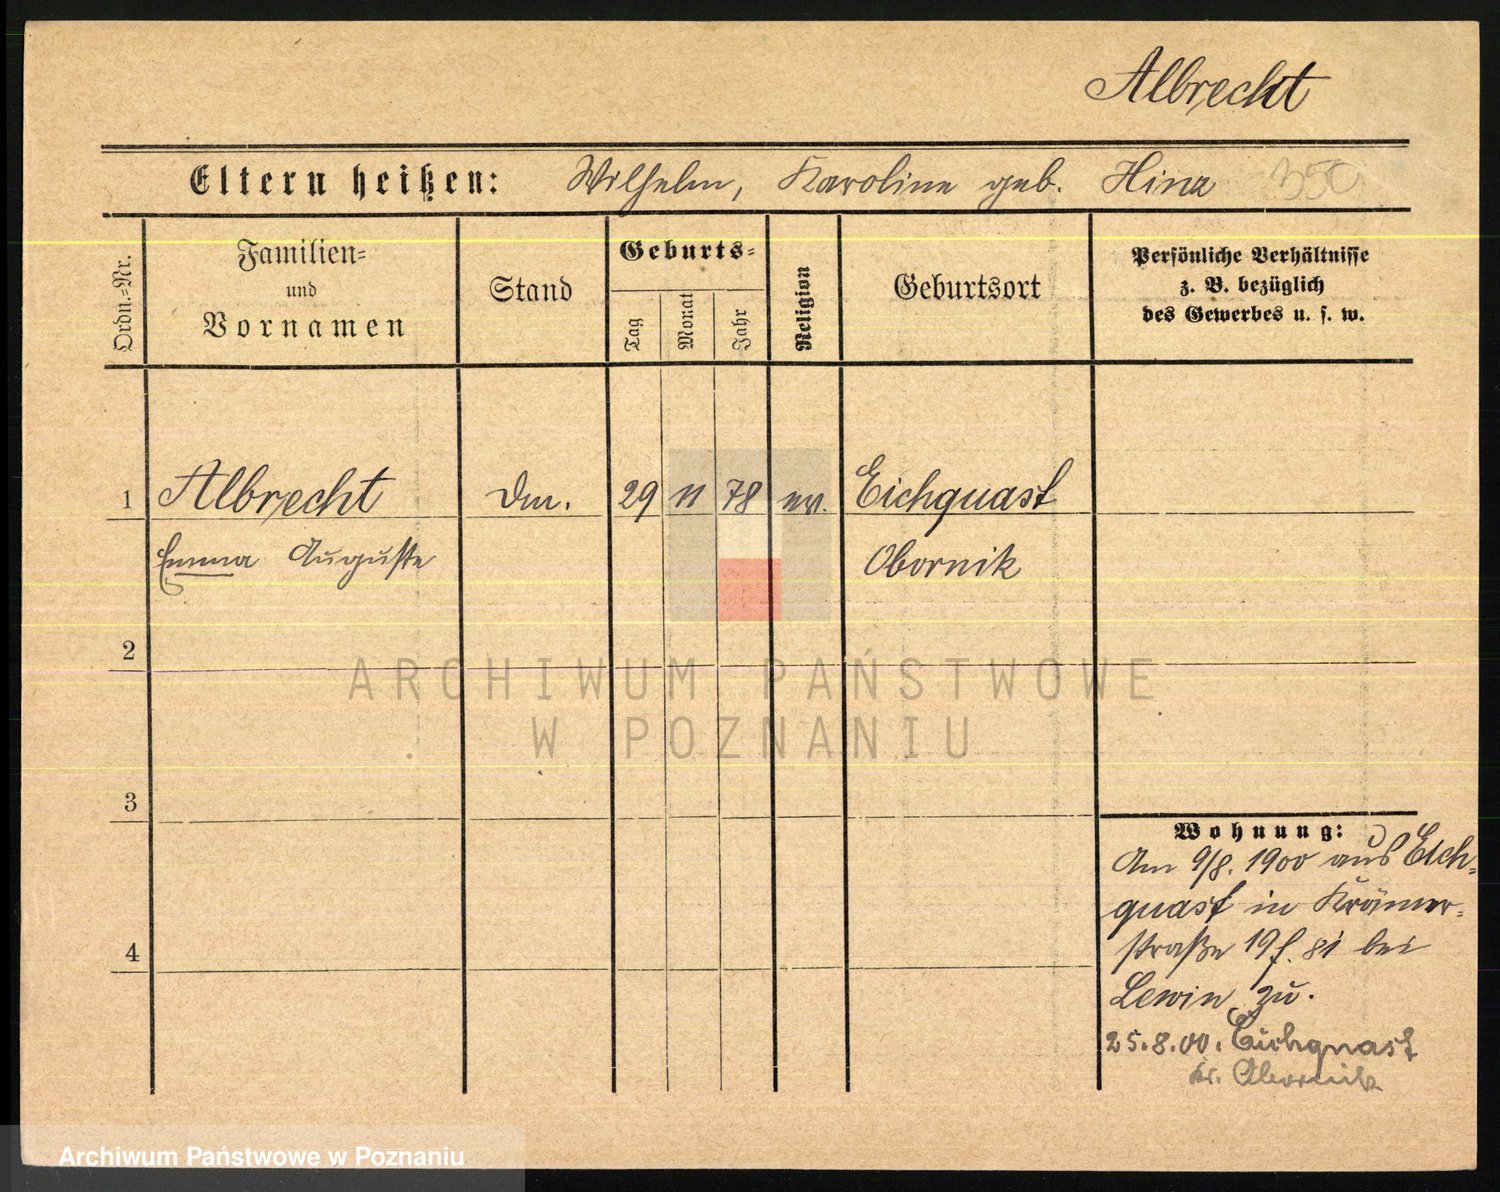 Albrecht
Eltern heißen: Wilhelm, Karoline geb. Hinz 350
Ordn.-Nr.
Familien-
und
Vornamen
Stand
Geburts-
Tag
Monat
Jahr
Religion
Geburtsort
Persönliche Verhältnisse
z. B. bezüglich
des Gewerbes u. s. w.
1 Albrecht 29 11 78 ev. Eichquast
Emma Auguste Obornik
2
ARCHIWUM PAŃSTWOWE
W POZNANIU
3
Wohnung:
Am 9/8. 1900 aus Eich-
quast in Krämer-
straße 19 f. bei
4
Lewin zu.
25.8.00. Eichquast
Kr. Obornik
Archiwum Państwowe w Poznaniu